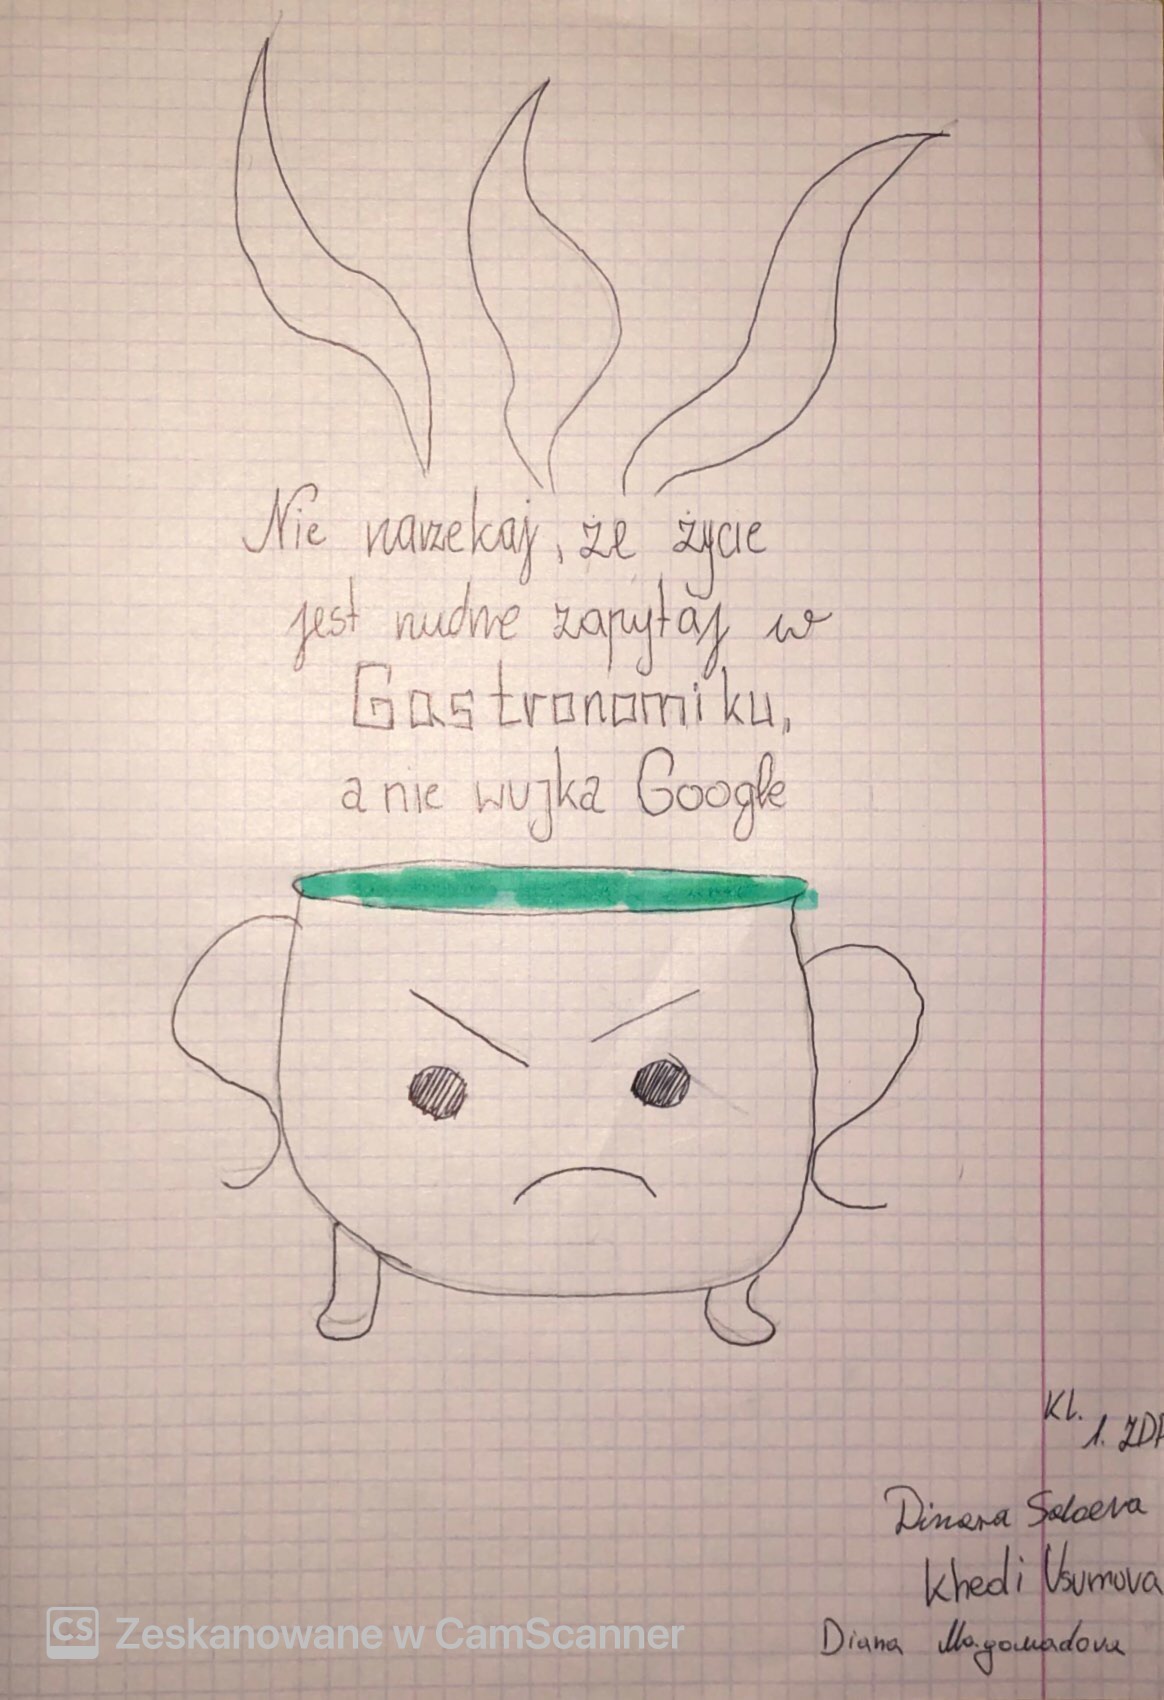 Nie narzekaj, że życie
jest nudne zapytaj w
Gastronomiku,
a nie wujka Google
Kl.
1. ZDP
Dinara Saloeva
Khedi Usumova
Diana Magomadova
CS Zeskanowane w CamScanner